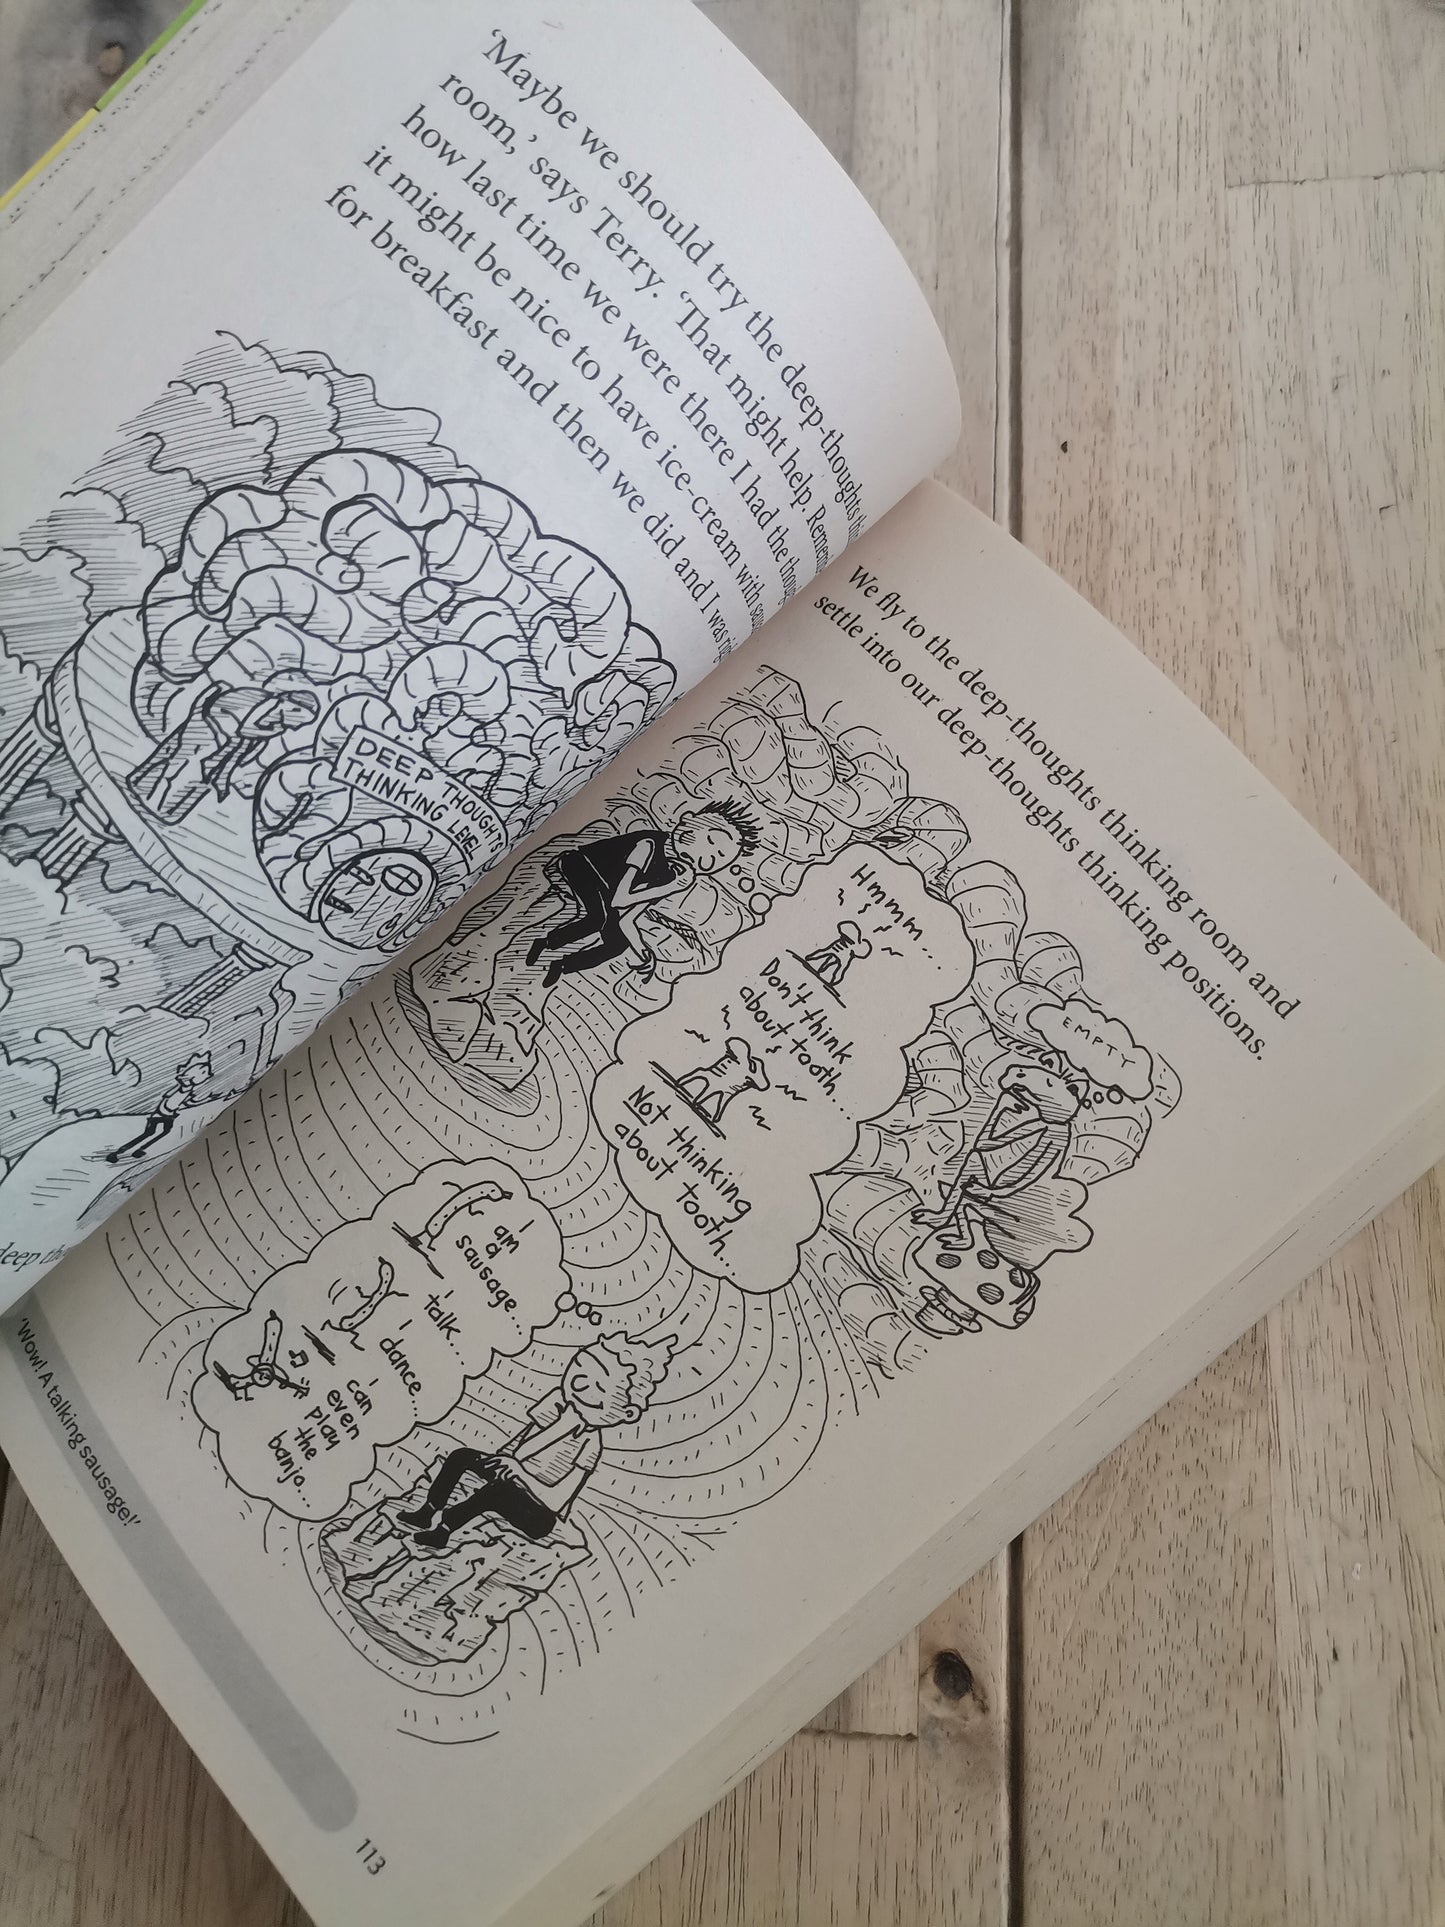 'Maybe we should try the deep-thoughts
room,' says Terry. 'That might help.
how last time we were there I had the
it might be nice to have ice-cream with
for breakfast and then we did and I was
DEEP THOUGHTS
THINKING LEVEL
We fly to the deep-thoughts thinking room and
settle into our deep-thoughts thinking positions.
Hmmm...
Don't think
about tooth...
Not thinking
about tooth...
EMPTY
I
am
a
sausage...
I
talk...
I
dance...
I
can
even
play
the
banjo...
'Wow! A talking sausage!'
113